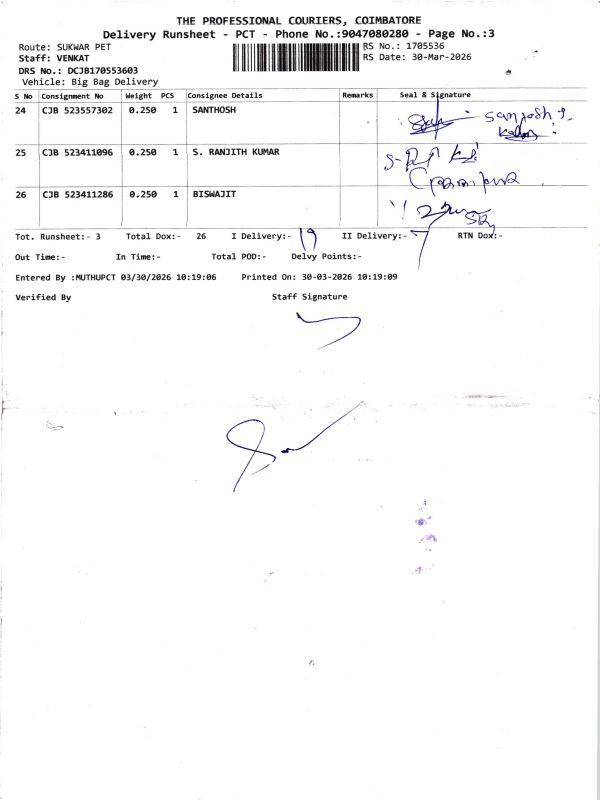 THE PROFESSIONAL COURIERS, COIMBATORE
Delivery Runsheet - PCT - Phone No.:9047080280 - Page No.:3
Route: SUKWAR PET RS No.: 1705536
Staff: VENKAT RS Date: 30-Mar-2026
DRS No.: DCJB170553603
Vehicle: Big Bag Delivery
S No Consignment No Weight PCS Consignee Details Remarks Seal & Signature
24 CJB 523557302 0.250 1 SANTHOSH
25 CJB 523411096 0.250 1 S. RANJITH KUMAR
26 CJB 523411286 0.250 1 BISWAJIT
Tot. Runsheet:- 3 Total Dox:- 26 I Delivery:- 19 II Delivery:- 7 RTN Dox:-
Out Time:- In Time:- Total POD:- Delvy Points:-
Entered By :MUTHUPCT 03/30/2026 10:19:06 Printed On: 30-03-2026 10:19:09
Verified By Staff Signature